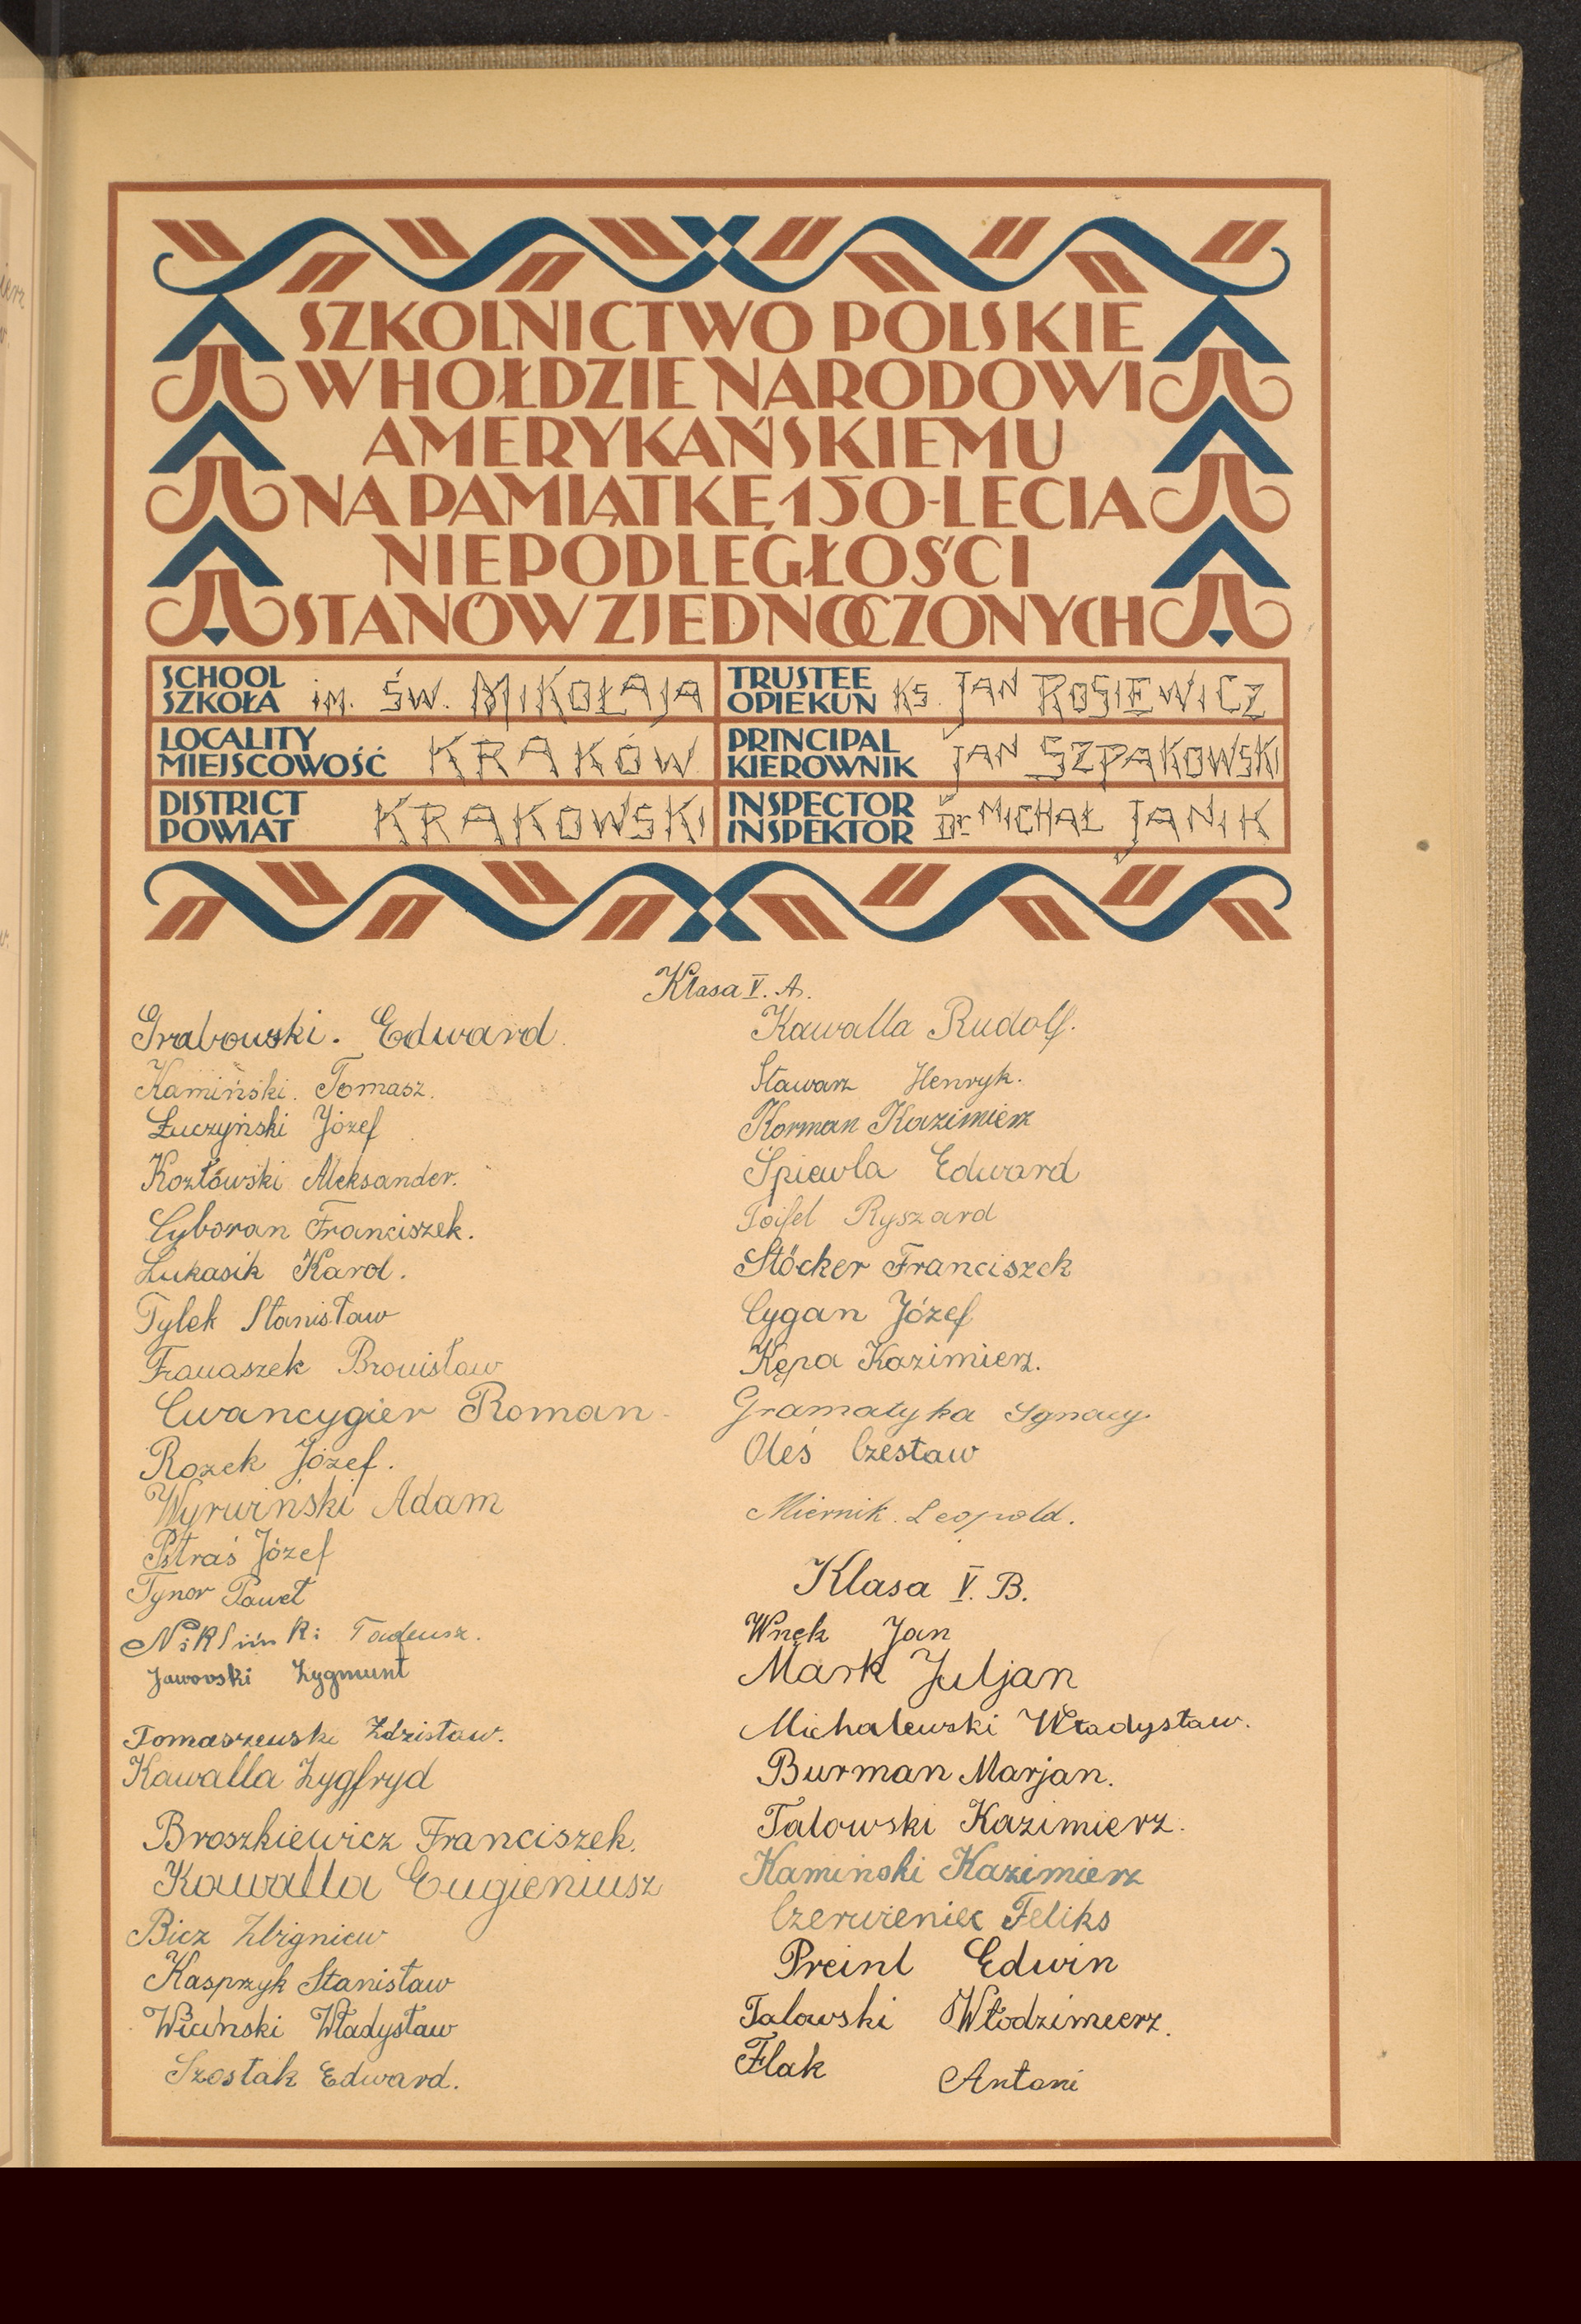 SZKOLNICTWO POLSKIE
W HOŁDZIE NARODOWI
AMERYKAŃSKIEMU
NA PAMIĄTKĘ 150-LECIA
NIEPODLEGŁOŚCI
STANÓW ZJEDNOCZONYCH
SCHOOL
SZKOŁA im. ŚW. MIKOŁAJA
TRUSTEE
OPIEKUN Ks. JAN ROSIEWICZ
LOCALITY
MIEJSCOWOŚĆ KRAKÓW
PRINCIPAL
KIEROWNIK JAN SZPAKOWSKI
DISTRICT
POWIAT KRAKOWSKI
INSPECTOR
INSPEKTOR Dr MICHAŁ JANIK
Klasa V. A.
Grabowski. Edward.
Kamiński. Tomasz.
Łuczyński Józef
Kozłowski Aleksander.
Cyboran Franciszek.
Łukasik Karol.
Tylek Stanisław
Franaszek Bronisław
Cwancygier Roman
Rozek Józef.
Wyrwiński Adam
Pstraś Józef
Tynor Paweł
Tadeusz.
Jaworski Zygmunt
Tomaszewski Zdzisław.
Kawalla Zygfryd
Broszkiewicz Franciszek.
Kawalla Eugieniusz
Bicz Zbigniew
Kasprzyk Stanisław
Wiciński Władysław
Szostak Edward.
Kawalla Rudolf.
Stawarz Henryk.
Korman Kazimierz
Śpiewla Edward
Toifel Ryszard
Stöcker Franciszek
Cygan Józef
Kępa Kazimierz.
Gramatyka Ignacy.
Oleś Czesław
Miernik Leopold.
Klasa V. B.
Wnęk Jan
Mark Juljan
Michalewski Władysław.
Burman Marjan.
Talowski Kazimierz.
Kamiński Kazimierz
Czerwieniec Feliks
Preinl Edwin
Talowski Włodzimierz.
Flak Antoni